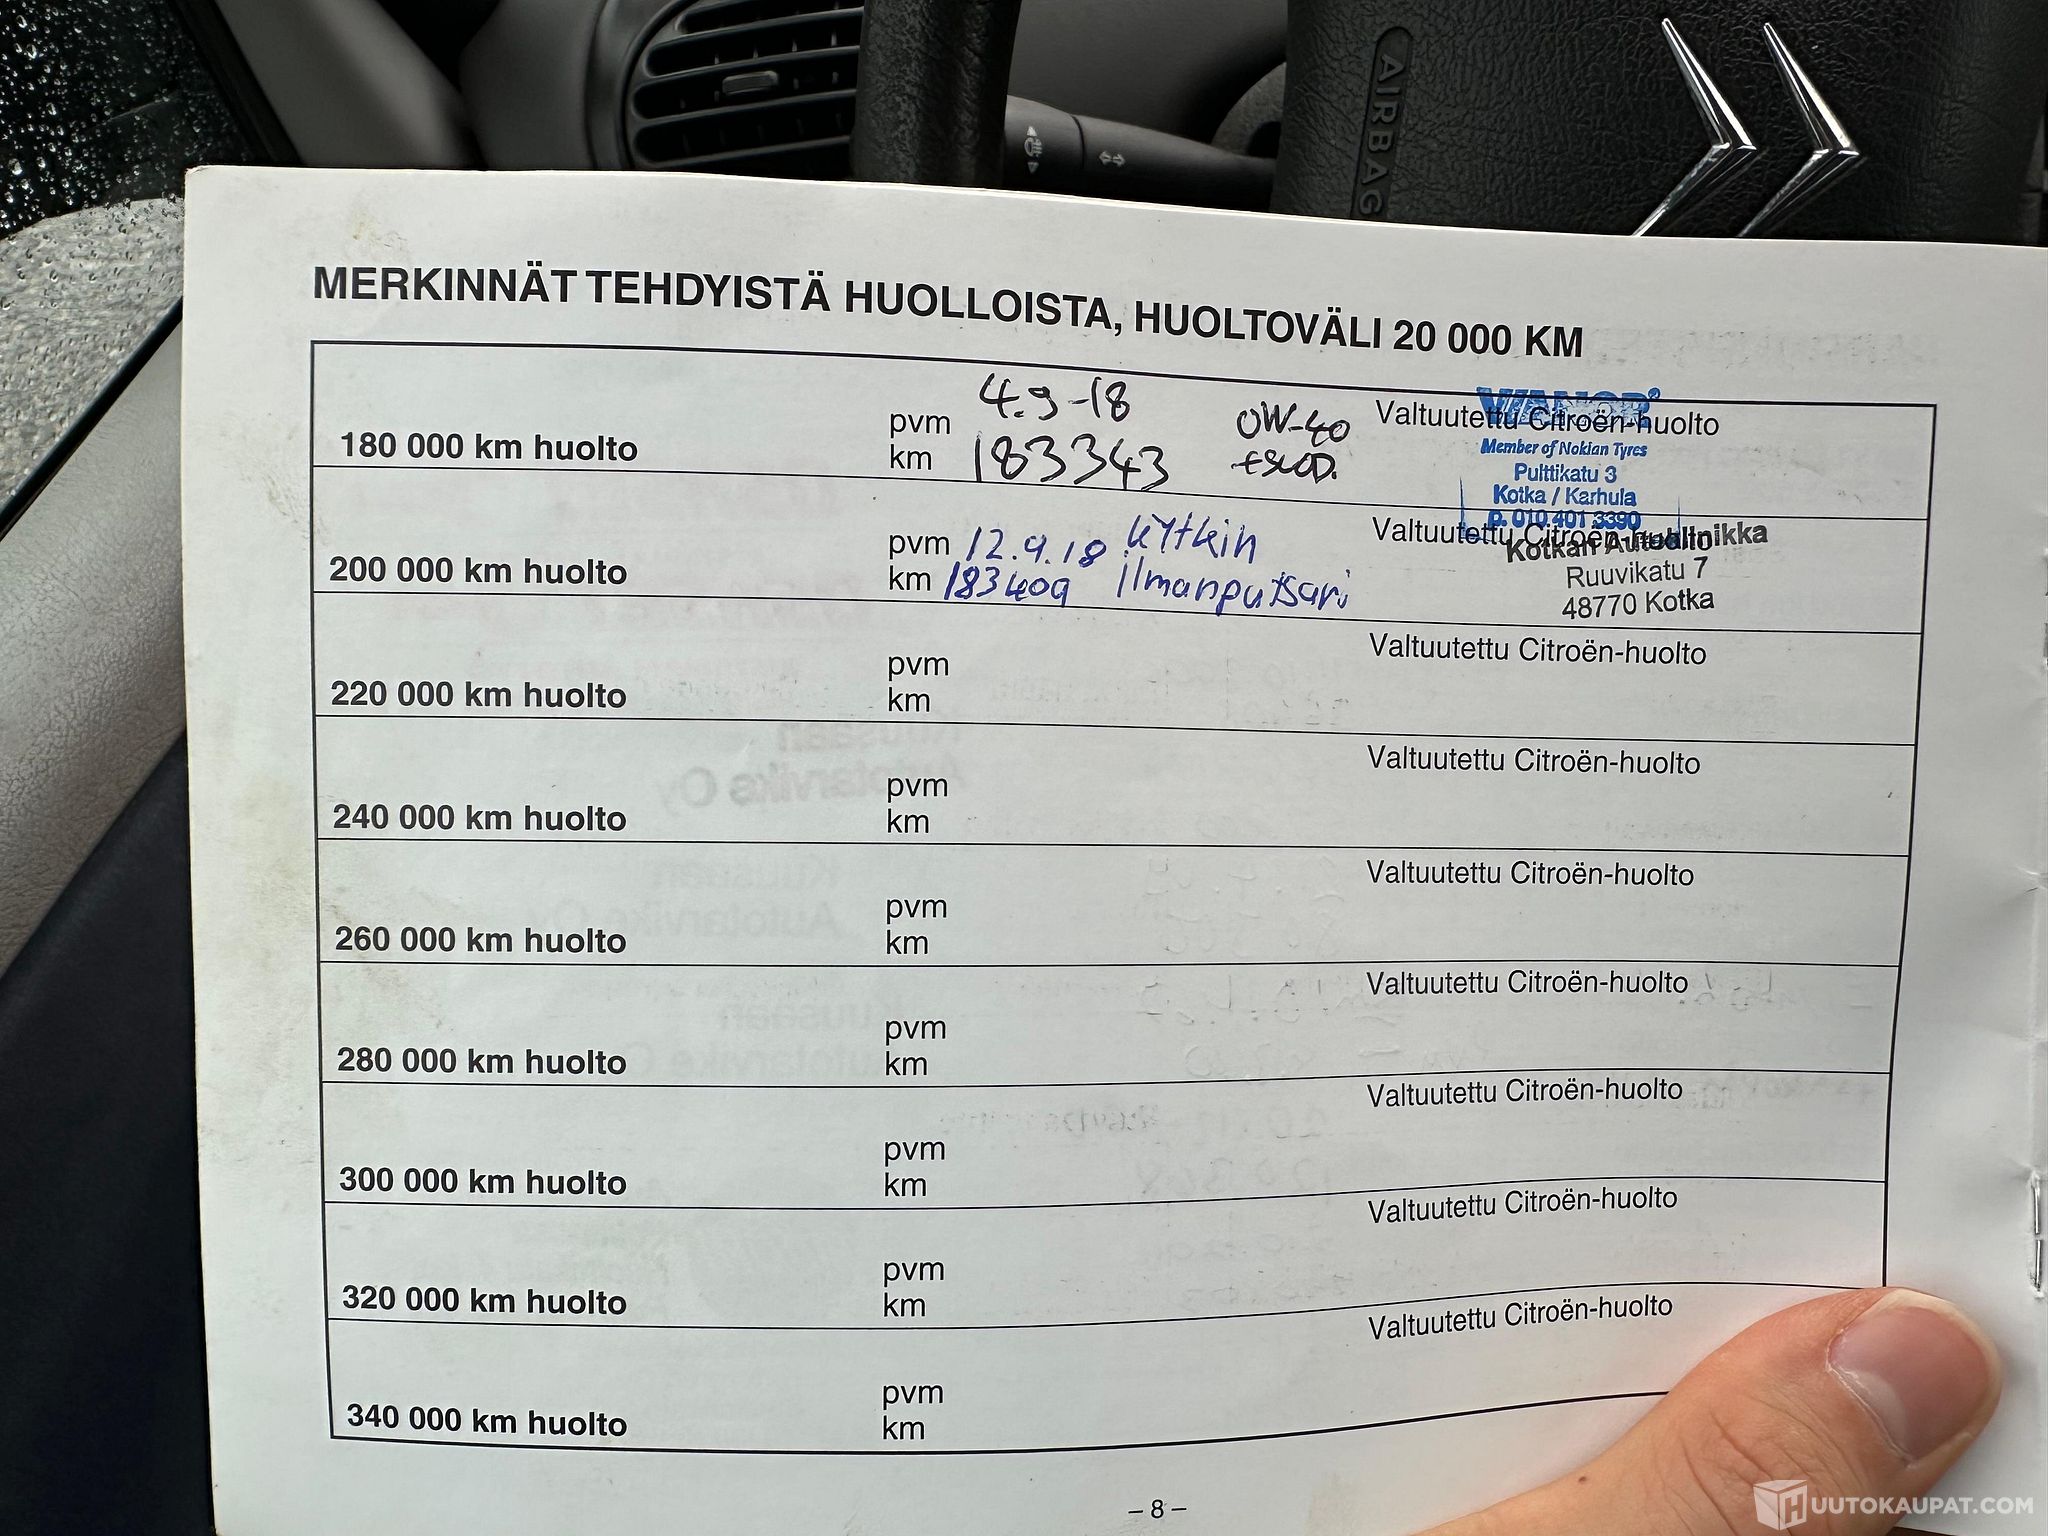 AIRBAG
MERKINNÄT TEHDYISTÄ HUOLLOISTA, HUOLTOVÄLI 20 000 KM
180 000 km huolto
pvm 4.9-18
km 183343
0W-40
Valtuutettu Citroën-huolto
VIANOR
Member of Nokian Tyres
Pulttikatu 3
Kotka / Karhula
p. 010 401 3390
200 000 km huolto
pvm 12.9.18 kytkin
km 183409 ilmanputsari
Valtuutettu Citroën-huolto
Kotkan Autoklinikka
Ruuvikatu 7
48770 Kotka
220 000 km huolto
pvm
km
Valtuutettu Citroën-huolto
240 000 km huolto
pvm
km
Valtuutettu Citroën-huolto
260 000 km huolto
pvm
km
Valtuutettu Citroën-huolto
280 000 km huolto
pvm
km
Valtuutettu Citroën-huolto
300 000 km huolto
pvm
km
Valtuutettu Citroën-huolto
320 000 km huolto
pvm
km
Valtuutettu Citroën-huolto
340 000 km huolto
pvm
km
Valtuutettu Citroën-huolto
– 8 –
HUUTOKAUPAT.COM